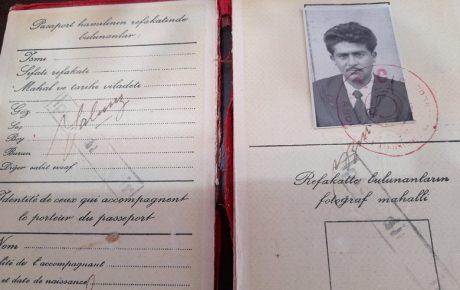 Pasaport hamilinin refakatinde
bulunanlar
İsmi
Sıfatı refakati
Mahal ve tarihi viladeti
Göz
Saç
Boy
Burun
Diğer sabit evsaf
Yalnız
Identité de ceux qui accompagnent
le porteur du passeport
Nom
lité de l'accompagnant
et date de naissance
Refakatte bulunanların
fotoğraf mahalli